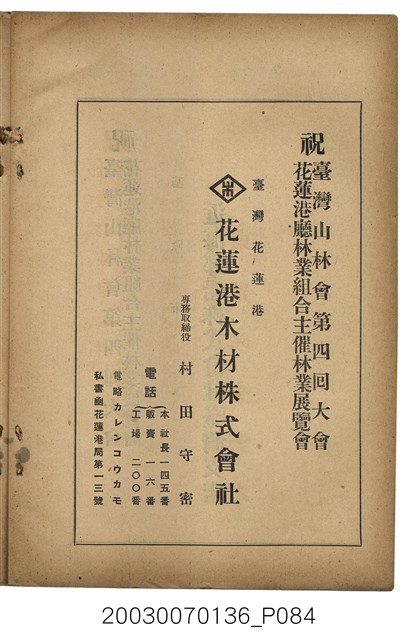 祝臺灣山林會第四回大會
花蓮港廳林業組合主催林業展覽會
臺灣花蓮港
花蓮港木材株式會社
專務取締役 村田守密
電話
本社長 一四五番
販賣 一六番
工場 二〇〇番
電略 カレンコウカモ
私書凾花蓮港局第一三號
20030070136_P084